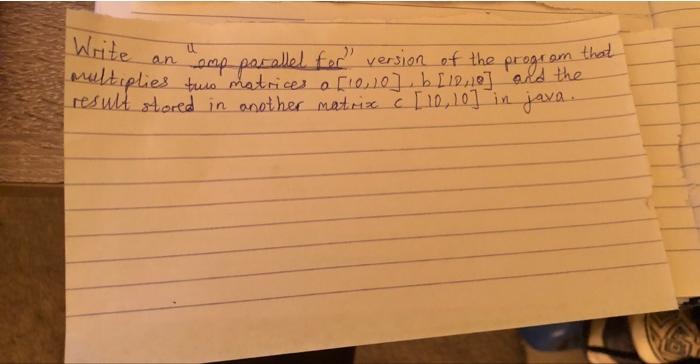 Write an "omp parallel for" version of the program that
multiplies two matrices a [10,10], b [10,10] and the
result stored in another matrix c [10,10] in java.